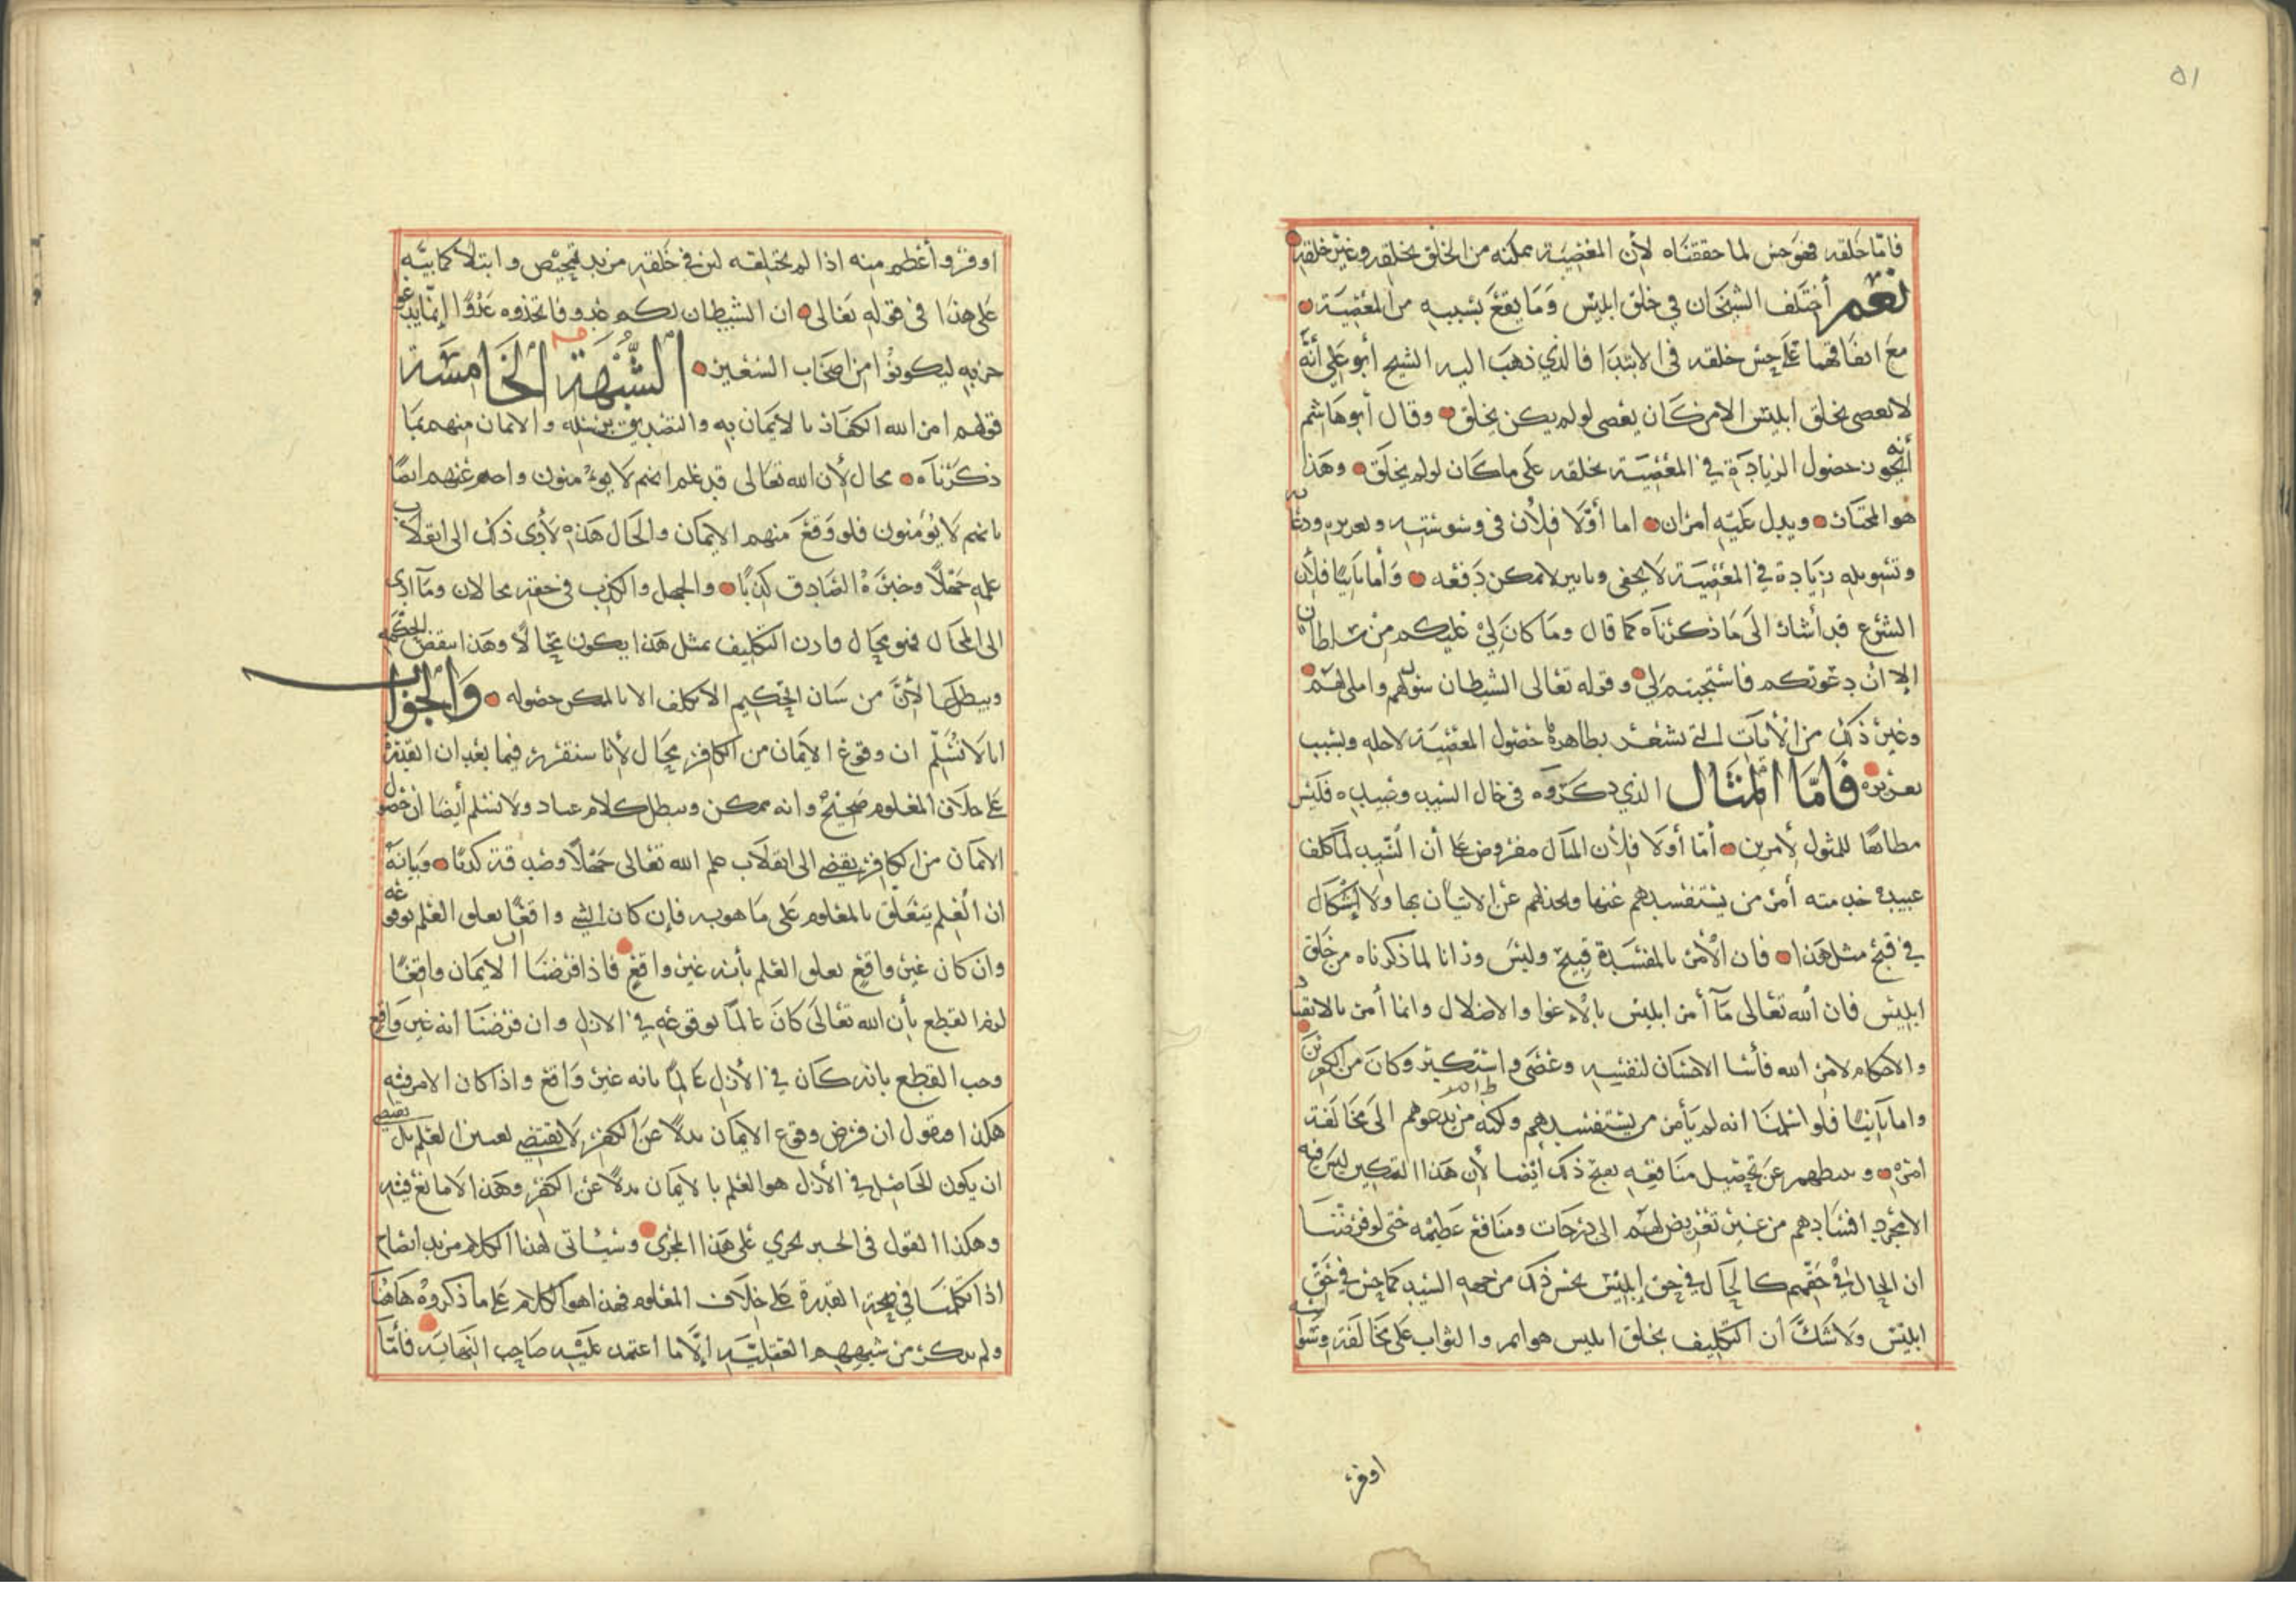 ٥١
فامّا خلقه فهو حسن لما حققناه لأن المعصية ممكنه من الخلق بخلقه وغير خلقه
نعم أختلف الشيخان في خلق ابليس وما يقع بسببه من المعصية
مع اتفاقهما على حسن خلقه في الابتدا فالذي ذهب اليه الشيخ أبو علي أنه
لا يعصى بخلق ابليس الا من كان يعصى لو لم يكن يخلق وقال أبو هاشم
أنه يجوز حصول الزيادة في المعصية بخلقه على ما كان لو لم يخلق وهذا
هو المختار ويدل عليه امران اما أوّلا فلأن في وسوسته وتغريره ودعائه
وتسويله زيادة في المعصية لا يخفى وتاثير لا يمكن دفعه وأما ثانيا فلأن
الشرع قد أشار الى ما ذكرناه كما قال وما كان لي عليكم من سلطان
الا ان دعوتكم فاستجبتم لي وقوله تعالى الشيطان سول لهم واملى لهم
وغير ذلك من الآيات التي يشعر بظاهرها حصول المعصية لاجله وبسبب
تغريره فامّا المثال الذي ذكروه في حال السيد وعبيده فليس
مطابقا للمثول لأمرين أمّا أولا فلأن المثال مفروض على أن السيد لما كلف
عبيده خدمته أمر من يستفسدهم عنها ويخذلهم عن الاتيان بها ولا إشكال
في قبح مثل هذا فان الأمر بالمفسدة قبيح وليس وزانا لما ذكرناه من خلق
ابليس فان الله تعالى ما أمر ابليس بالإغوا والاضلال وانما أمر بالانقياد
والاحكام لامر الله فأسا الاختيار لنفسه وعصى واستكبر وكان من الكافرين
واما ثانيا فلو اسلمنا انه لم يأمر من يستفسدهم ولكنه من يدعوهم الى مخالفة
امره ويبطهم عن تحصيل منافعه بقبح ذلك أيضا لأن هذا التمكين ليس فيه
الا مجرد افسادهم من غير تعريض لهم الى درجات ومنافع عظيمه حتى لو فرضنا
ان الحال في حقهم كالحال في حق إبليس لحسن ذلك من جهه السيد كما حسن في حق
ابليس ولا شك ان التكليف بخلق ابليس هو اتم والثواب على مخالفته وسوسته
اوفر
اوفر وأعظم منه اذا لم يختلقه لان في خلقه مزيد تمحيص وابتلا كما نبه
على هذا في قوله تعالى ان الشيطان لكم عدو فاتخذوه عدوّا إنّما يدعو
حزبه ليكونوا من اصحاب السعير الشبهة الخامسة
قولهم امر الله الكفار بالإيمان به والتصديق برسله والايمان منهم بما
ذكرناه محال لأن الله تعالى قد علم انهم لا يؤمنون واخبر عنهم ايضا
بانهم لا يؤمنون فلو وقع منهم الايمان والحال هذه لأدى ذلك الى انقلاب
علمه جهلا وخبره الصادق كذبا والجهل والكذب في حقه محالان وما أدى
الى المحال فهو محال فاذن التكليف بمثل هذا يكون محالا وهذا ينقض الحكمة
ويبطلها لأن من شان الحكيم الا يكلف الا بالممكن حصوله والجواب
انا لا نسلّم ان وقوع الايمان من الكافر محال لأنا سنقرر فيما بعد ان القدرة
على خلاف المعلوم صحيح وانه ممكن ويبطل كلام عباد ولا نسلم أيضا ان حصول
الايمان من الكافر يفضي الى انقلاب علم الله تعالى جهلا وصدقه كذبا وبيانه
ان العلم يتعلق بالمعلوم على ما هو به فإن كان الشي واقعا تعلق العلم بوقوعه
وان كان غير واقع تعلق العلم بأنه غير واقع فاذا فرضنا ان الايمان واقعا
لزم القطع بأن الله تعالى كان عالما بوقوعه في الازل وان فرضنا انه غير واقع
وجب القطع بانه كان في الأزل عالما بانه غير واقع واذا كان الامر فيه
هكذا فنقول ان فرض وقوع الايمان بدلا عن الكفر لا يقتضي تغيير العلم بل يقتضي
ان يكون الحاصل في الأزل هو العلم بالايمان بدلا عن الكفر وهذا لا مانع فيه
وهكذا القول في الخبر يجري على هذا المجرى وسياتي لهذا الكلام مزيد ايضاح
اذا تكلمنا في صحة القدرة على خلاف المعلوم فهذا هو الكلام على ما ذكروه هاهنا
ولم يذكر من شبههم العقلية إلا ما اعتمد عليه صاحب النهايه فأمّا